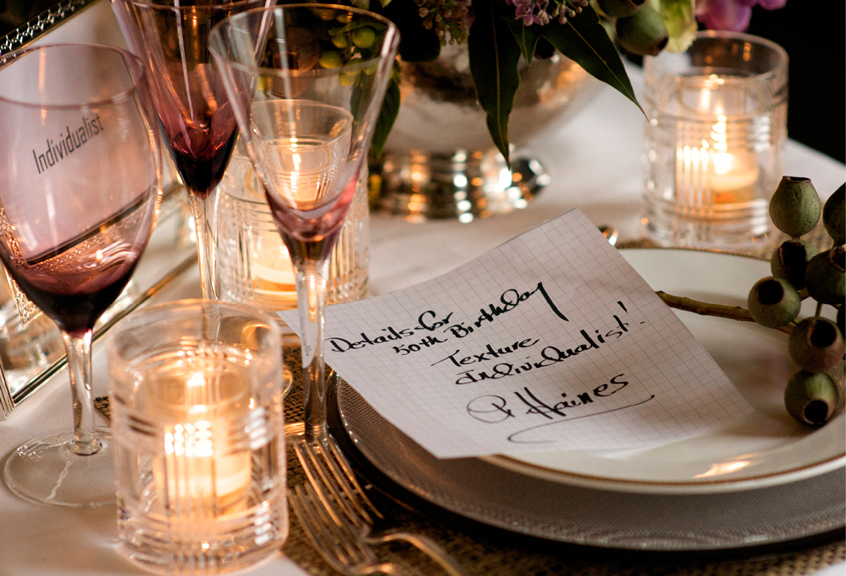 Individualist
Details for
50th Birthday
Texture
individualist!
P Haines